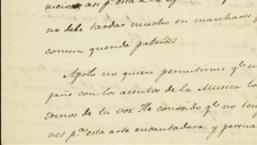 no debe tardar mucho en marcharse
comun querida patria
Apolo no quiere permitirme qe
paño con los acentos de la Musica lo
trenos de tu voz He conocido qe no ten
nes pa esta arte encantadora, y persua